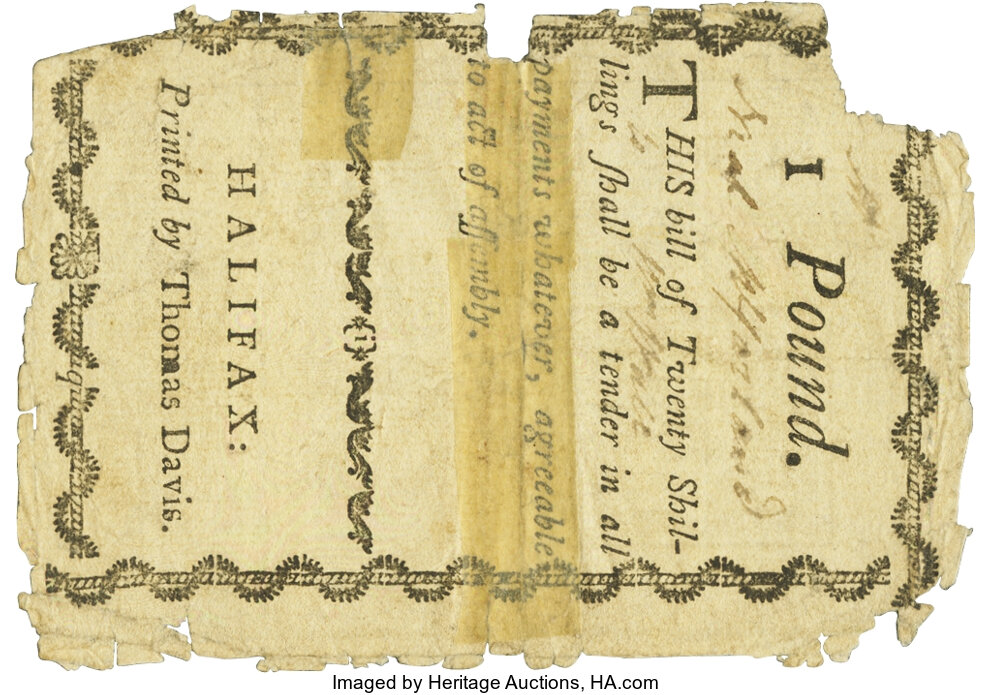 I Pound.
THIS bill of Twenty Shil-
lings ſhall be a tender in all
payments whatever, agreeable
to act of aſſembly.
HALIFAX:
Printed by Thomas Davis.
Imaged by Heritage Auctions, HA.com